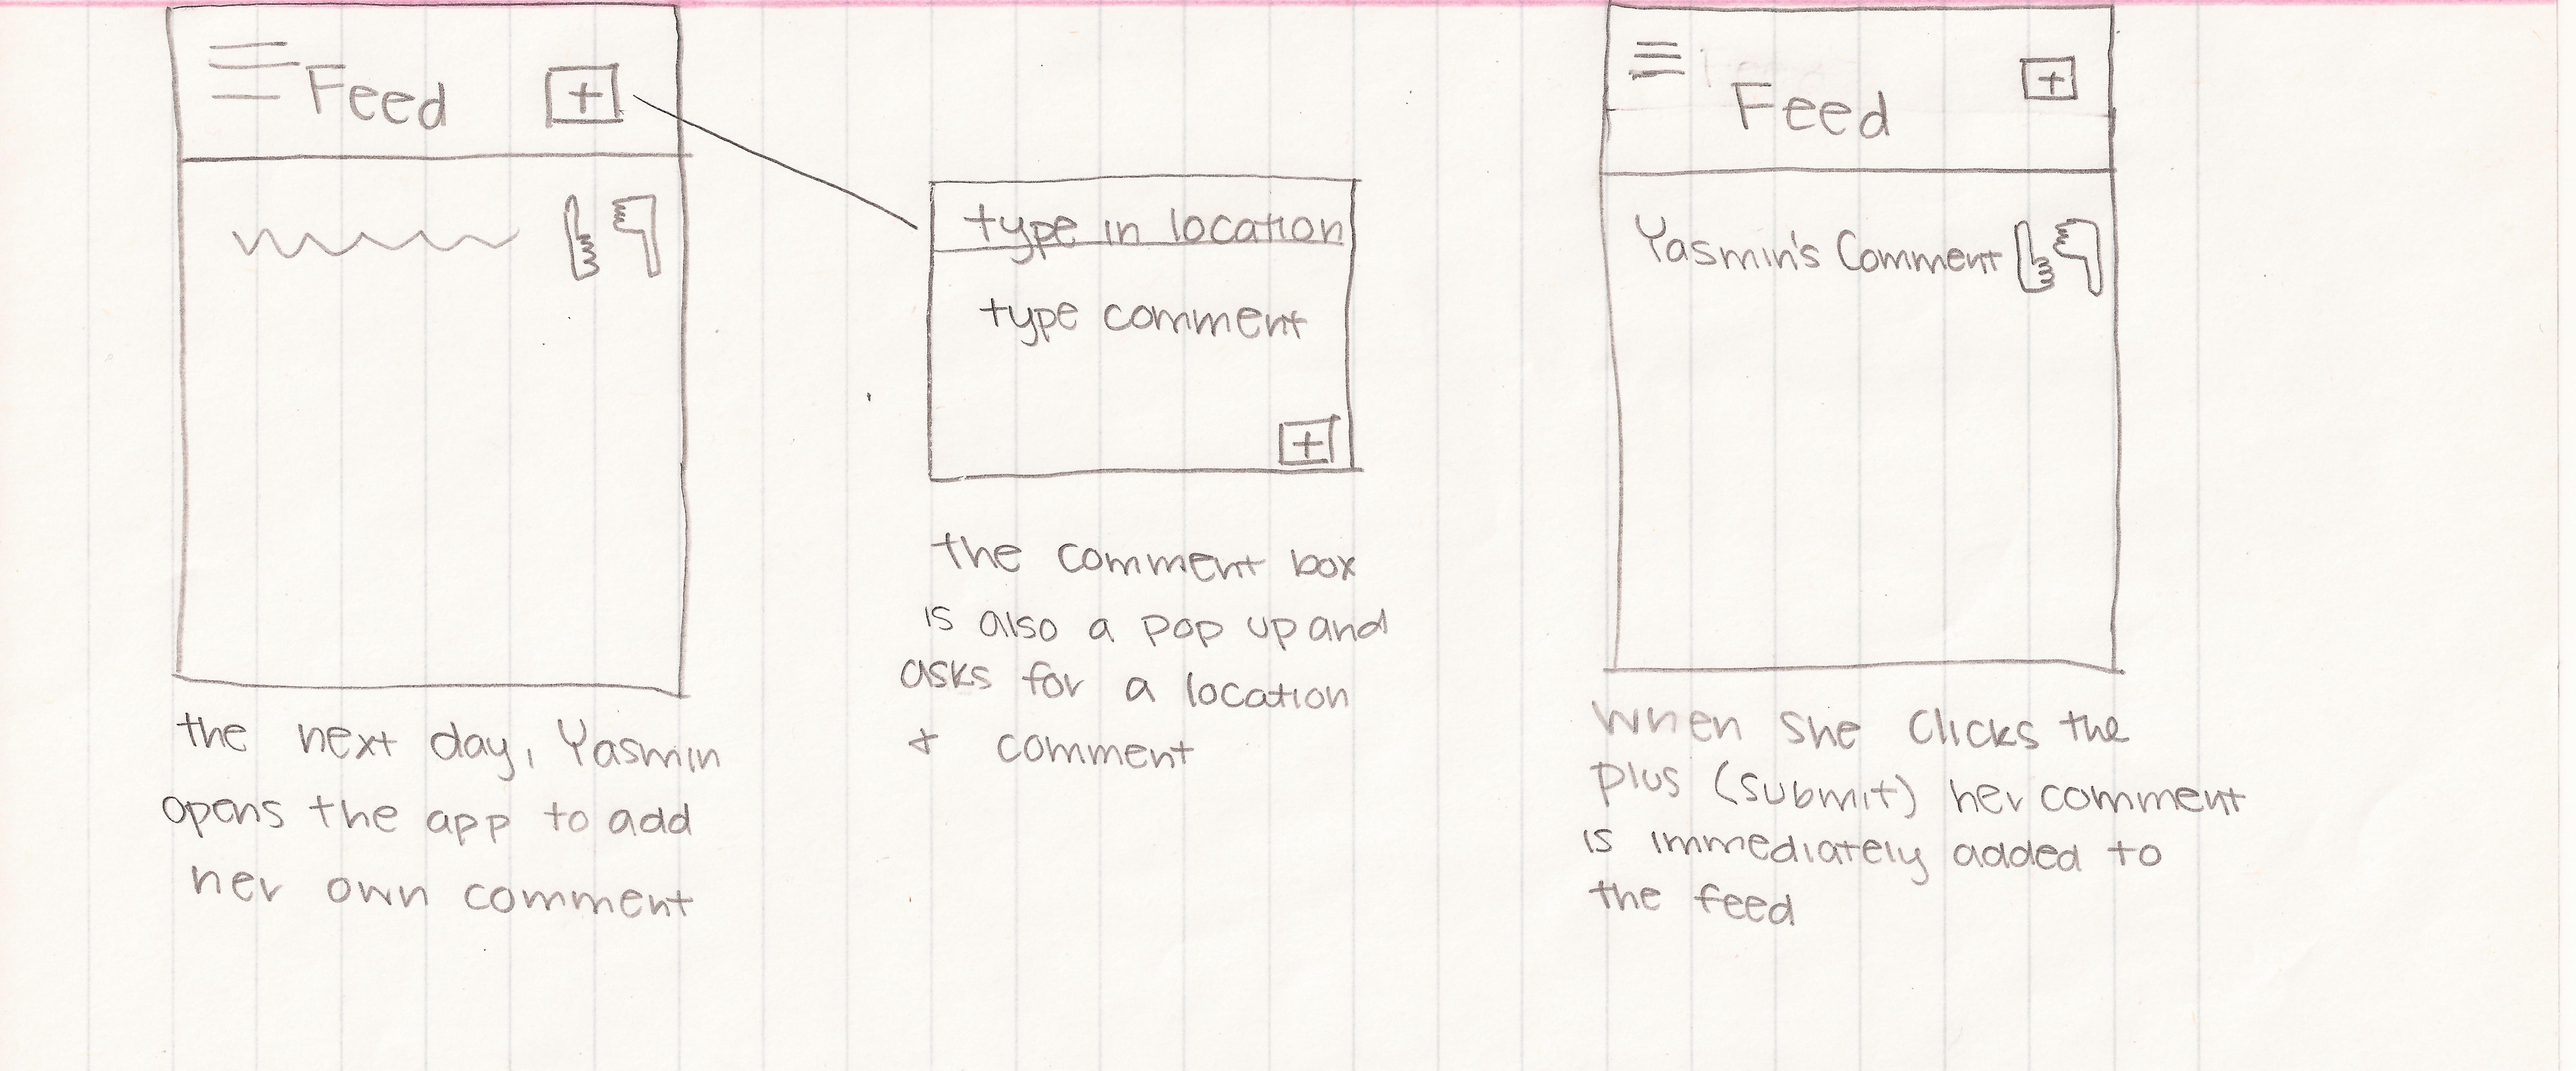 Feed +
the next day, Yasmin
opens the app to add
her own comment
type in location
type comment
+
the comment box
is also a pop up and
asks for a location
+ comment
Feed +
Yasmin's Comment
When she clicks the
plus (submit) her comment
is immediately added to
the feed